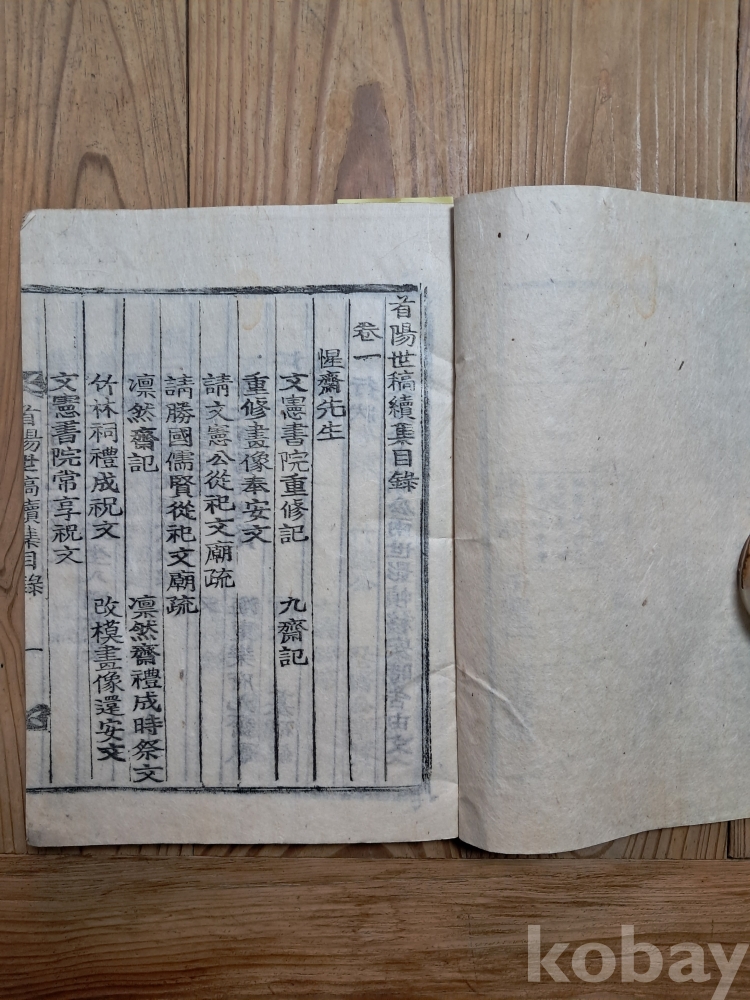 首陽世稿續集目錄
卷一
惺齋先生
文憲書院重修記 九齋記
重修畫像奉安文
請文憲公從祀文廟疏
請勝國儒賢從祀文廟疏
凛然齋記 凛然齋禮成時祭文
竹林祠禮成祝文 改模畫像還安文
文憲書院常享祝文
首陽世稿續集目錄 一
kobay